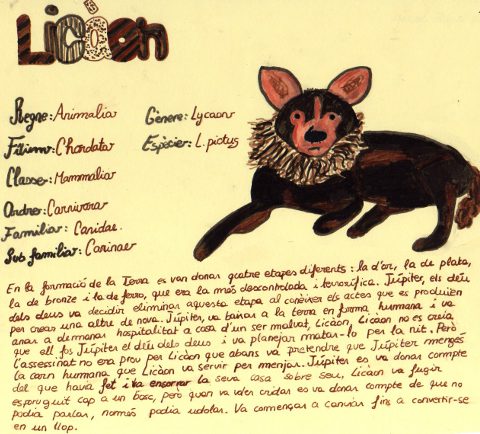 Licaon
Regne: Animalia
Gènere: Lycaon
Fílum: Chordata
Espècie: L. pictus
Classe: Mammalia
Ordre: Carnivora
Família: Canidae.
Sub família: Caninae
En la formació de la Terra es van donar quatre etapes diferents: la d'or, la de plata,
la de bronze i la de ferro, que era la més descontrolada i terrorífica. Júpiter, el déu
dels deus va decidir eliminar aquesta etapa al conèixer els actes que es produïen
per crear una altre de nova. Júpiter, va baixar a la terra en forma humana i va
anar a demanar hospitalitat a casa d'un ser malvat, Licàon, Licàon no es creia
que ell fos Júpiter el déu dels deus i va planejar matar-lo per la nit. Però
l'assesinat no era prou per Licàon que abans va pretendre que Júpiter mengés
la carn humana que Licàon va servir per menjar. Júpiter es va donar compte
del que havia fet i va ensorrar la seva casa sobre seu, Licàon va fugir
esporuguit cap a un bosc, però quan va voler cridar es va donar compte de que no
podia parlar, només podia udolar. Va començar a canviar fins a convertir-se
en un llop.